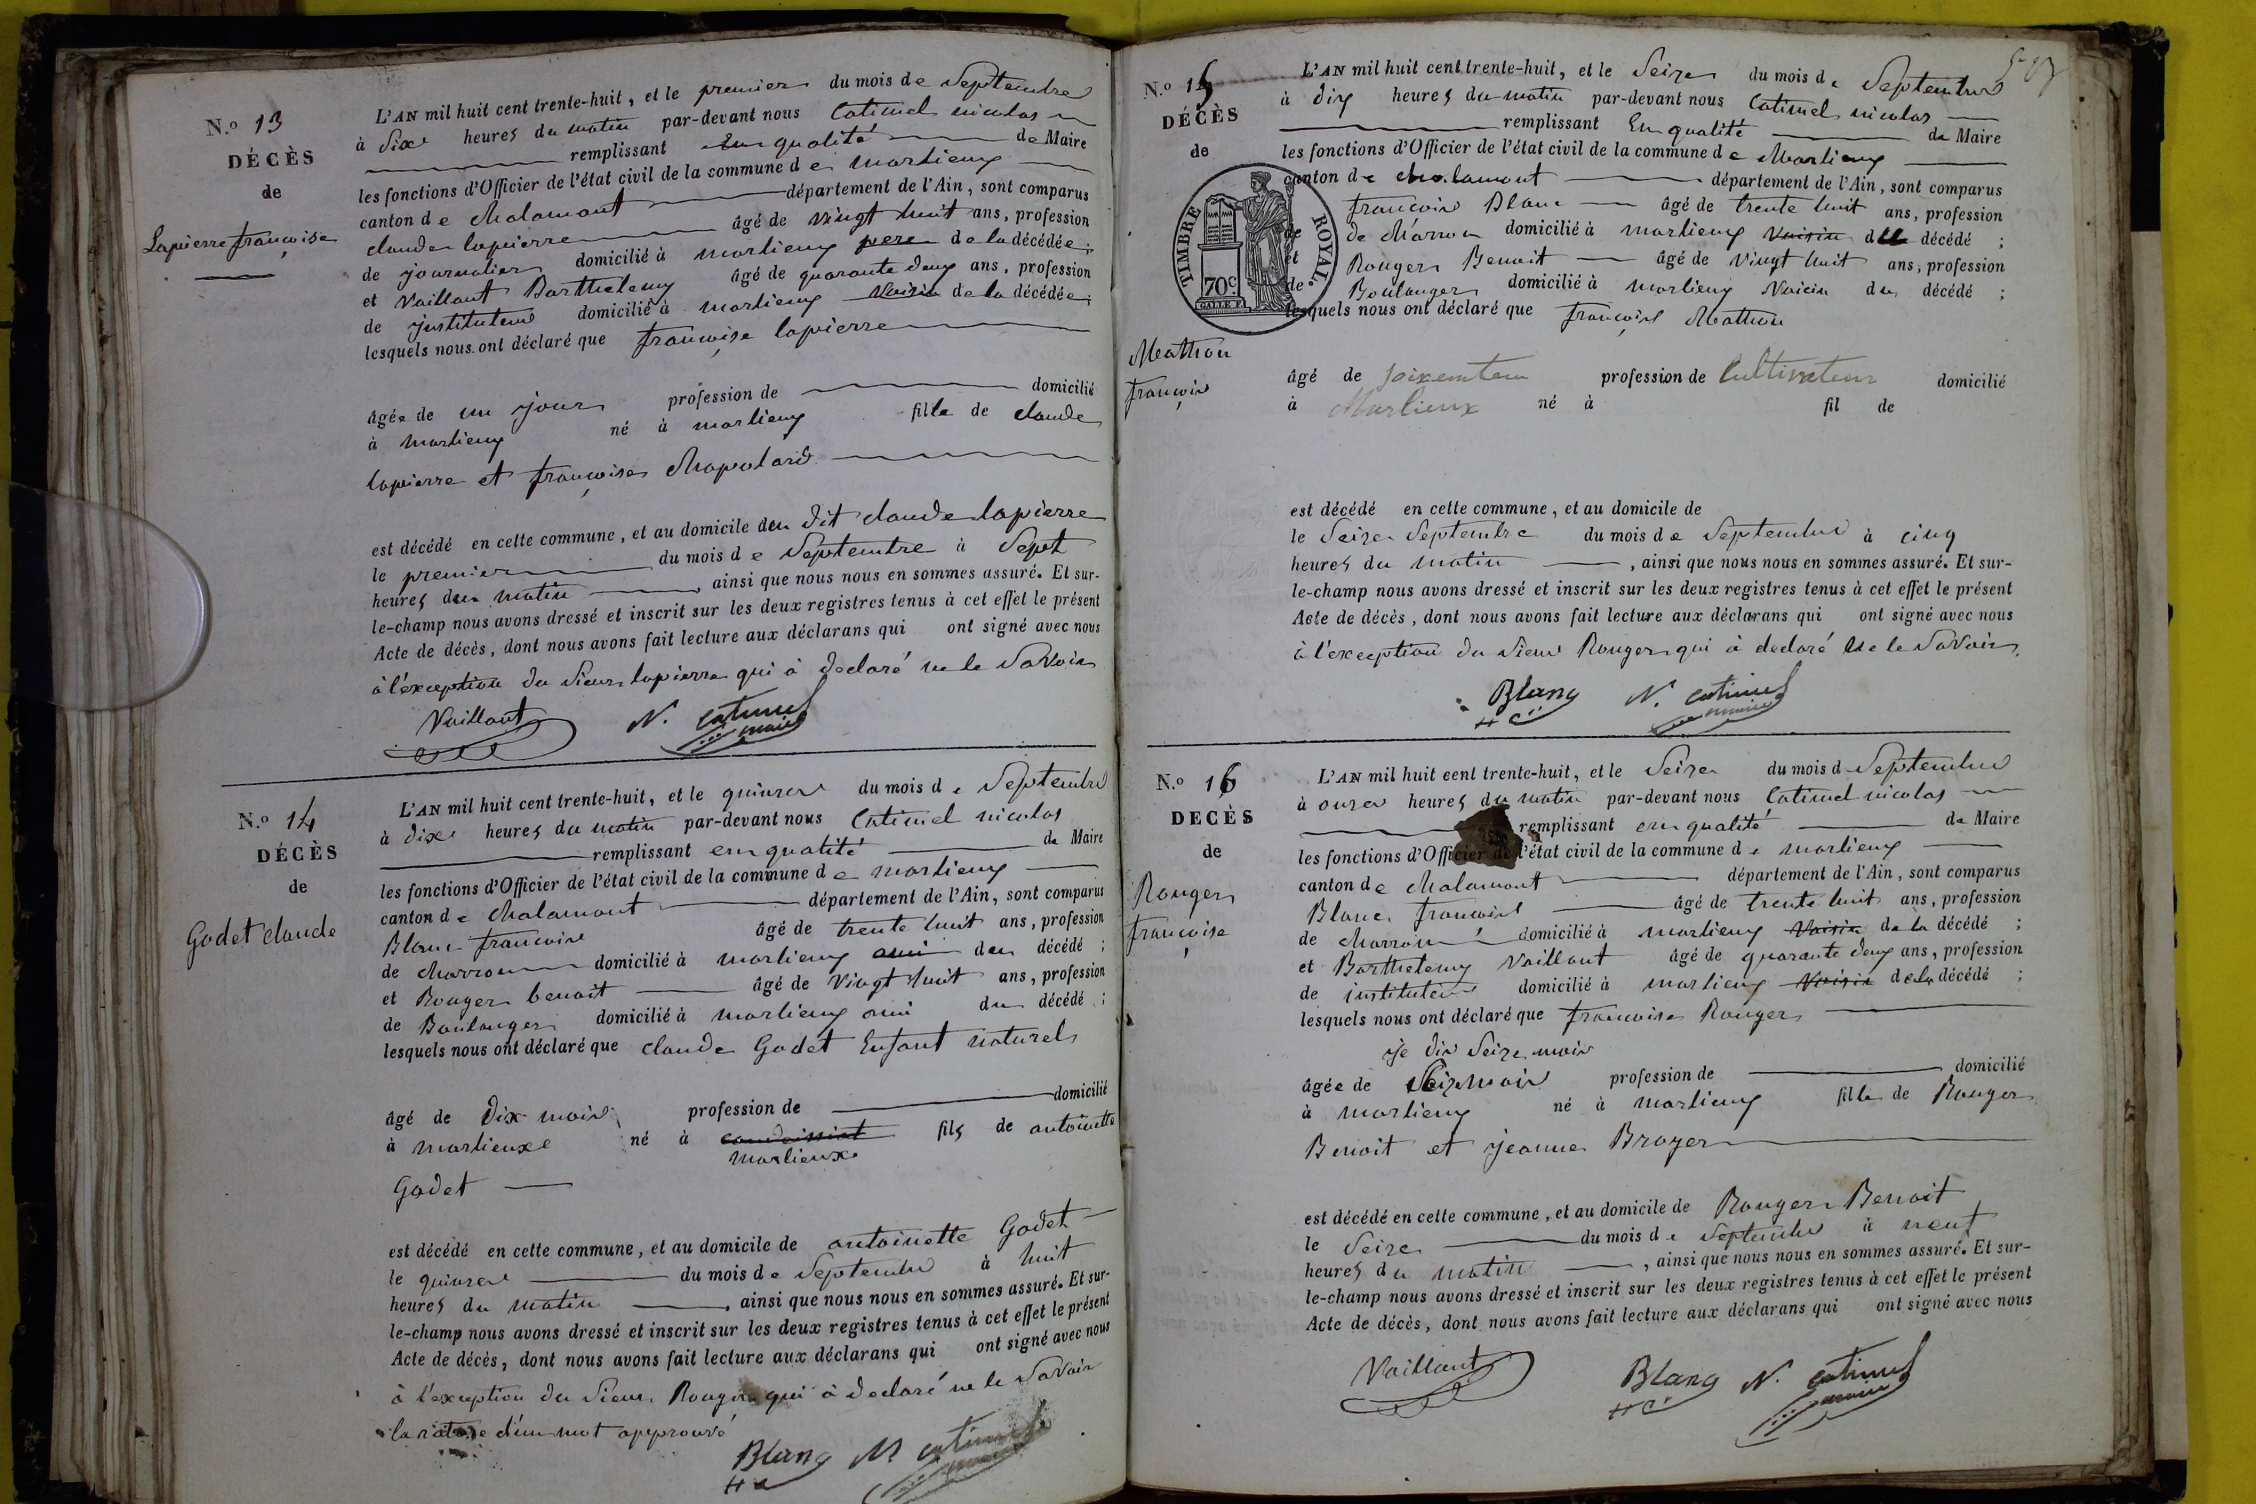 N.o 13
DÉCÈS
de
Lapierre françoise
L'AN mil huit cent trente-huit, et le premier du mois de Septembre
à dix heures du matin par-devant nous Catimel nicolas
remplissant En qualité de Maire
les fonctions d'Officier de l'état civil de la commune de marlieux
canton de chalamont département de l'Ain, sont comparus
claude lapierre âgé de vingt huit ans, profession
de journalier domicilié à marlieux pere de la décédée;
et Vaillant Barthelemy âgé de quarante deux ans, profession
de instituteur domicilié à marlieux Voisin de la décédée;
lesquels nous ont déclaré que françoise lapierre
âgée de un jour profession de domicilié
à marlieux né à marlieux fille de claude
lapierre et françoise chapolard
est décédé en cette commune, et au domicile du dit claude lapierre
le premier du mois de Septembre à Sept
heures du matin, ainsi que nous nous en sommes assuré. Et sur-
le-champ nous avons dressé et inscrit sur les deux registres tenus à cet effet le présent
Acte de décès, dont nous avons fait lecture aux déclarans qui ont signé avec nous
à l'éxception du Sieur lapierre qui à declaré ne le Savoir
Vaillant N. Catimel
maire
N.o 14
DÉCÈS
de
Godet claude
L'AN mil huit cent trente-huit, et le quinze du mois de Septembre
à dix heures du matin par-devant nous Catimel nicolas
remplissant en qualité de Maire
les fonctions d'Officier de l'état civil de la commune de marlieux
canton de chalamont département de l'Ain, sont comparus
Blanc françois âgé de trente huit ans, profession
de charron domicilié à marlieux ami du décédé;
et Rouger benoit âgé de Vingt huit ans, profession
de Boulanger domicilié à marlieux ami du décédé;
lesquels nous ont déclaré que claude Godet Enfant naturel
âgé de dix mois profession de domicilié
à marlieux né à condeissiat fils de antoinette
marlieux
Godet
est décédé en cette commune, et au domicile de antoinette Godet
le quinze du mois de Septembre à huit
heures du matin, ainsi que nous nous en sommes assuré. Et sur-
le-champ nous avons dressé et inscrit sur les deux registres tenus à cet effet le présent
Acte de décès, dont nous avons fait lecture aux déclarans qui ont signé avec nous
à l'exception du Sieur Rouger qui à declaré ne le Savoir
la rature d'un mot approuvé
Blanc N Catimel
maire
N.o 15
DÉCÈS
de
Mathon
françois
TIMBRE ROYAL.
70c.
L'AN mil huit cent trente-huit, et le Seize du mois de Septembre
à dix heures du matin par-devant nous Catimel nicolas
remplissant En qualité de Maire
les fonctions d'Officier de l'état civil de la commune de Marlieux
canton de chalamont département de l'Ain, sont comparus
françois Blanc âgé de trente huit ans, profession
de de charron domicilié à marlieux Voisin du décédé;
et Rouger Benoit âgé de Vingt huit ans, profession
de Boulanger domicilié à marlieux Voicin du décédé;
lesquels nous ont déclaré que françois Mathon
âgé de profession de Cultivateur domicilié
à Marlieux né à fil de
est décédé en cette commune, et au domicile de
le Seize Septembre du mois de Septembre à cinq
heures du matin, ainsi que nous nous en sommes assuré. Et sur-
le-champ nous avons dressé et inscrit sur les deux registres tenus à cet effet le présent
Acte de décès, dont nous avons fait lecture aux déclarans qui ont signé avec nous
à l'exception du Sieur Rouger qui à declaré ne le Savoir
Blanc N. Catimel
maire
N.o 16
DÉCÈS
de
Rouger
françoise
L'AN mil huit cent trente-huit, et le Seize du mois de Septembre
à onze heures du matin par-devant nous Catimel nicolas
remplissant en qualité de Maire
les fonctions d'Officier de l'état civil de la commune de marlieux
canton de chalamont département de l'Ain, sont comparus
Blanc françois âgé de trente huit ans, profession
de charron domicilié à marlieux Voisin de la décédé;
et Barthelemy Vaillant âgé de quarante deux ans, profession
de instituteur domicilié à marlieux Voisin de la décédé;
lesquels nous ont déclaré que françoise Rouger
je dis Seize mois
âgée de Seize mois profession de domicilié
à marlieux né à marlieux fille de Rouger
Benoit et jeanne Broyer
est décédé en cette commune, et au domicile de Rouger Benoit
le Seize du mois de Septembre à neuf
heures du matin, ainsi que nous nous en sommes assuré. Et sur-
le-champ nous avons dressé et inscrit sur les deux registres tenus à cet effet le présent
Acte de décès, dont nous avons fait lecture aux déclarans qui ont signé avec nous
Vaillant Blanc N. Catimel
maire